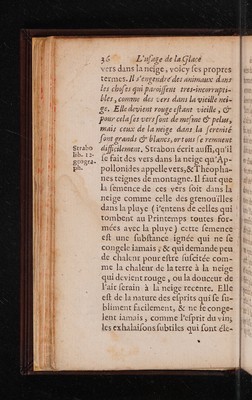 36 L'usage de la Glace
vers dans la neige, voicy ses propres
termes. Il s'engendre des animaux dans
les choses qui paroissent tres-incorrupti-
bles, comme des vers dans la vieille nei-
ge. Elle devient rouge estant vieille, &
pour cela ses vers sont de mesme & pelus,
mais ceux de la neige dans la serenité
sont grands & blancs, or tous se remuent
difficilement. Strabon écrit aussi, qu'il
Strabo
lib. 12.
geogra.
ph.
se fait des vers dans la neige qu'Ap-
pollonides appelle vers, & Theopha-
nes teignes de montagne. Il faut que
la semence de ces vers soit dans la
neige comme celle des grenoüilles
dans la pluye (j'entens de celles qui
tombent au Printemps toutes for-
mées avec la pluye) cette semence
est une substance ignée qui ne se
congele jamais, & qui demande peu
de chaleur pour estre suscitée com-
me la chaleur de la terre à la neige
qui devient rouge, ou la douceur de
l'air serain à la neige recente. Elle
est de la nature des esprits qui se su-
bliment facilement, & ne se conge-
lent jamais, comme l'esprit du vin,
les exhalaisons subtiles qui sont éle-